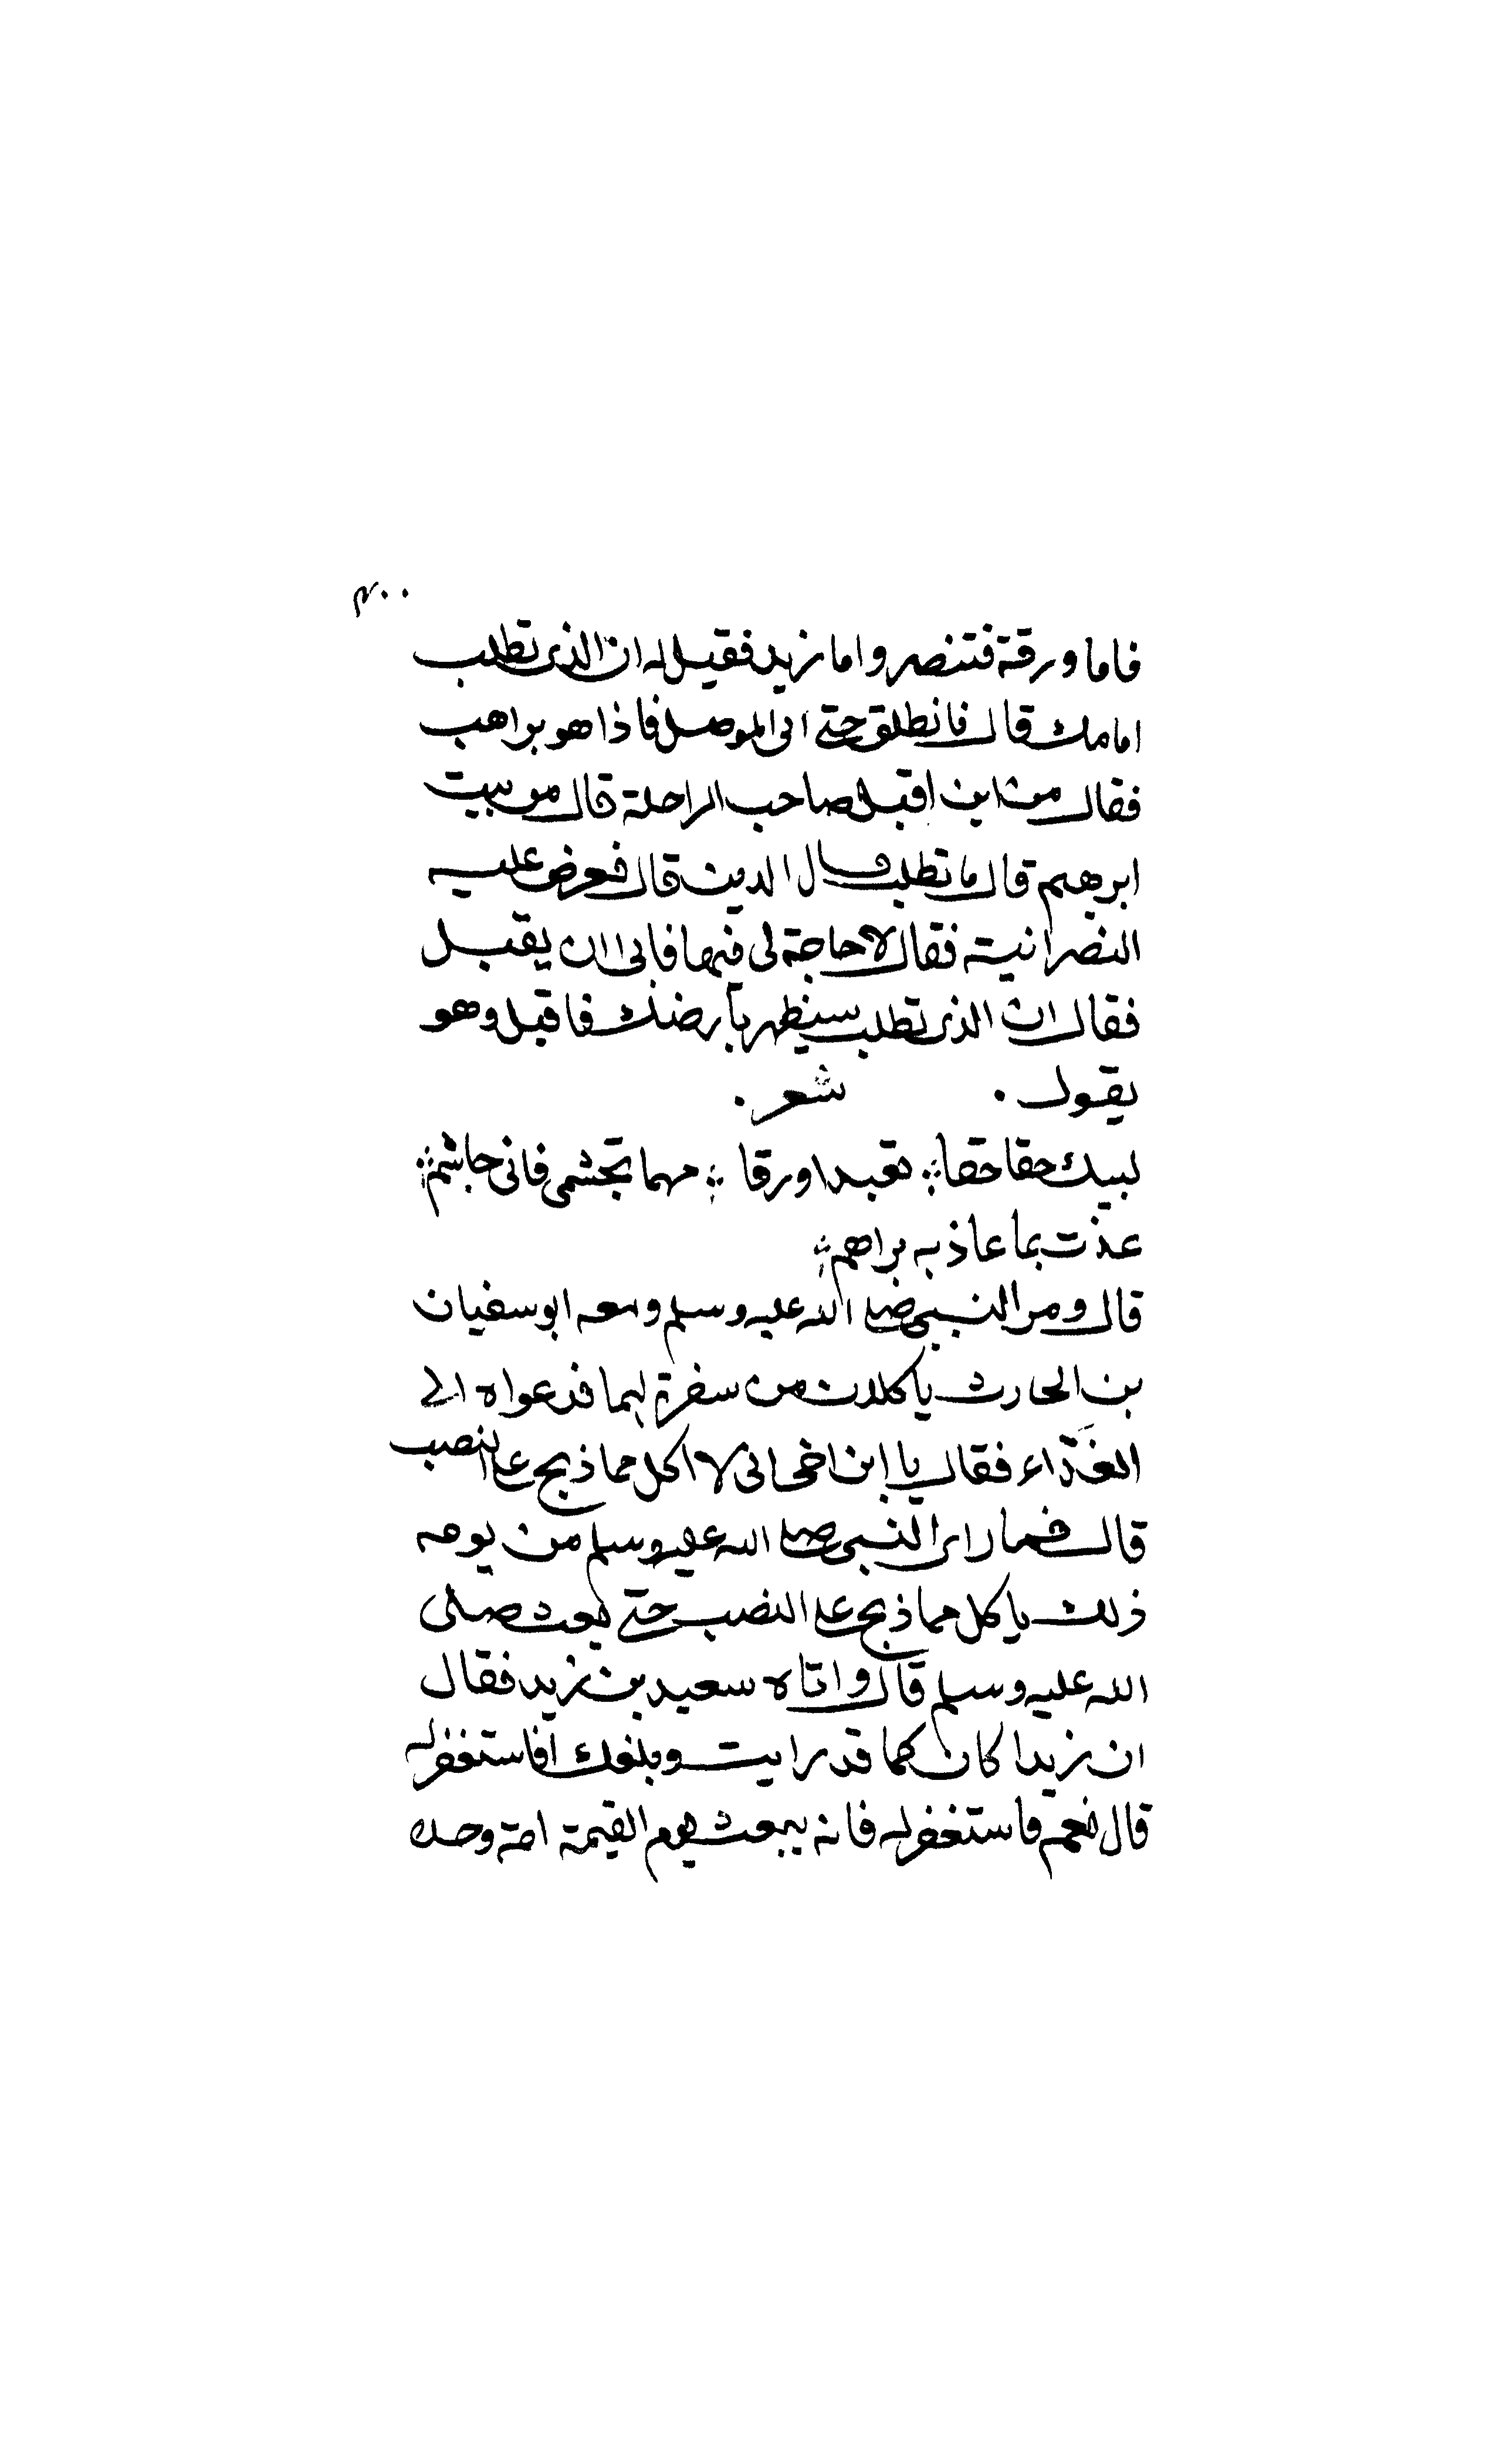 ٣٠٠
فاما ورقة فتنصر واما زيد فقيل له ان الذى تطلب
امامك قال فانطلق حتى اتى الموصل فاذا هو براهب
فقال من اين اقبل صاحب الراحلة قال من بيت
ابرهيم قال ما تطلب قال الدين قال فعرض عليه
النصرانية فقال لا حاجة لى فيها فابى ان يقبل
فقال ان الذى تطلب سيظهر بارضك فاقبل وهو
يقول . شعر .
لبيك حقا حقا تعبدا ورقا مهما تجشمى فانى جاشم
عذت بما عاذ به براهم
قال ومر النبى صلى الله عليه وسلم ومعه ابو سفيان
بن الحارث ياكلان من سفرة لهما فدعواه الى
الغَدّاء فقال يا ابن اخى انى لا اكل مما ذبح على النصب
قال فما راى النبى صلى الله عليه وسلم من يومه
ذلك ياكل مما ذبح على النصب حتى بعث صلى
الله عليه وسلم قال واتاه سعيد بن زيد فقال
ان زيدا كان كما قد رايت وبلغك افاستغفر له
قال نعم فاستغفر له فانه يبعث يوم القيمة امة وحده